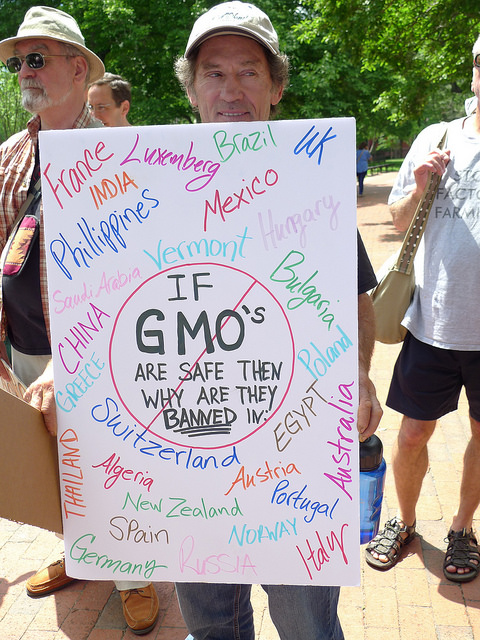 France
Luxemberg
Brazil
UK
INDIA
Mexico
Phillippines
Hungary
Vermont
Saudi Arabia
Bulgaria
CHINA
IF
GMO's
ARE SAFE THEN
WHY ARE THEY
BANNED IN:
Poland
GREECE
Switzerland
EGYPT
Australia
THAILAND
Algeria
Austria
New Zealand
Portugal
SPain
NORWAY
Germany
RUSSIA
Italy
FACTO
FARM